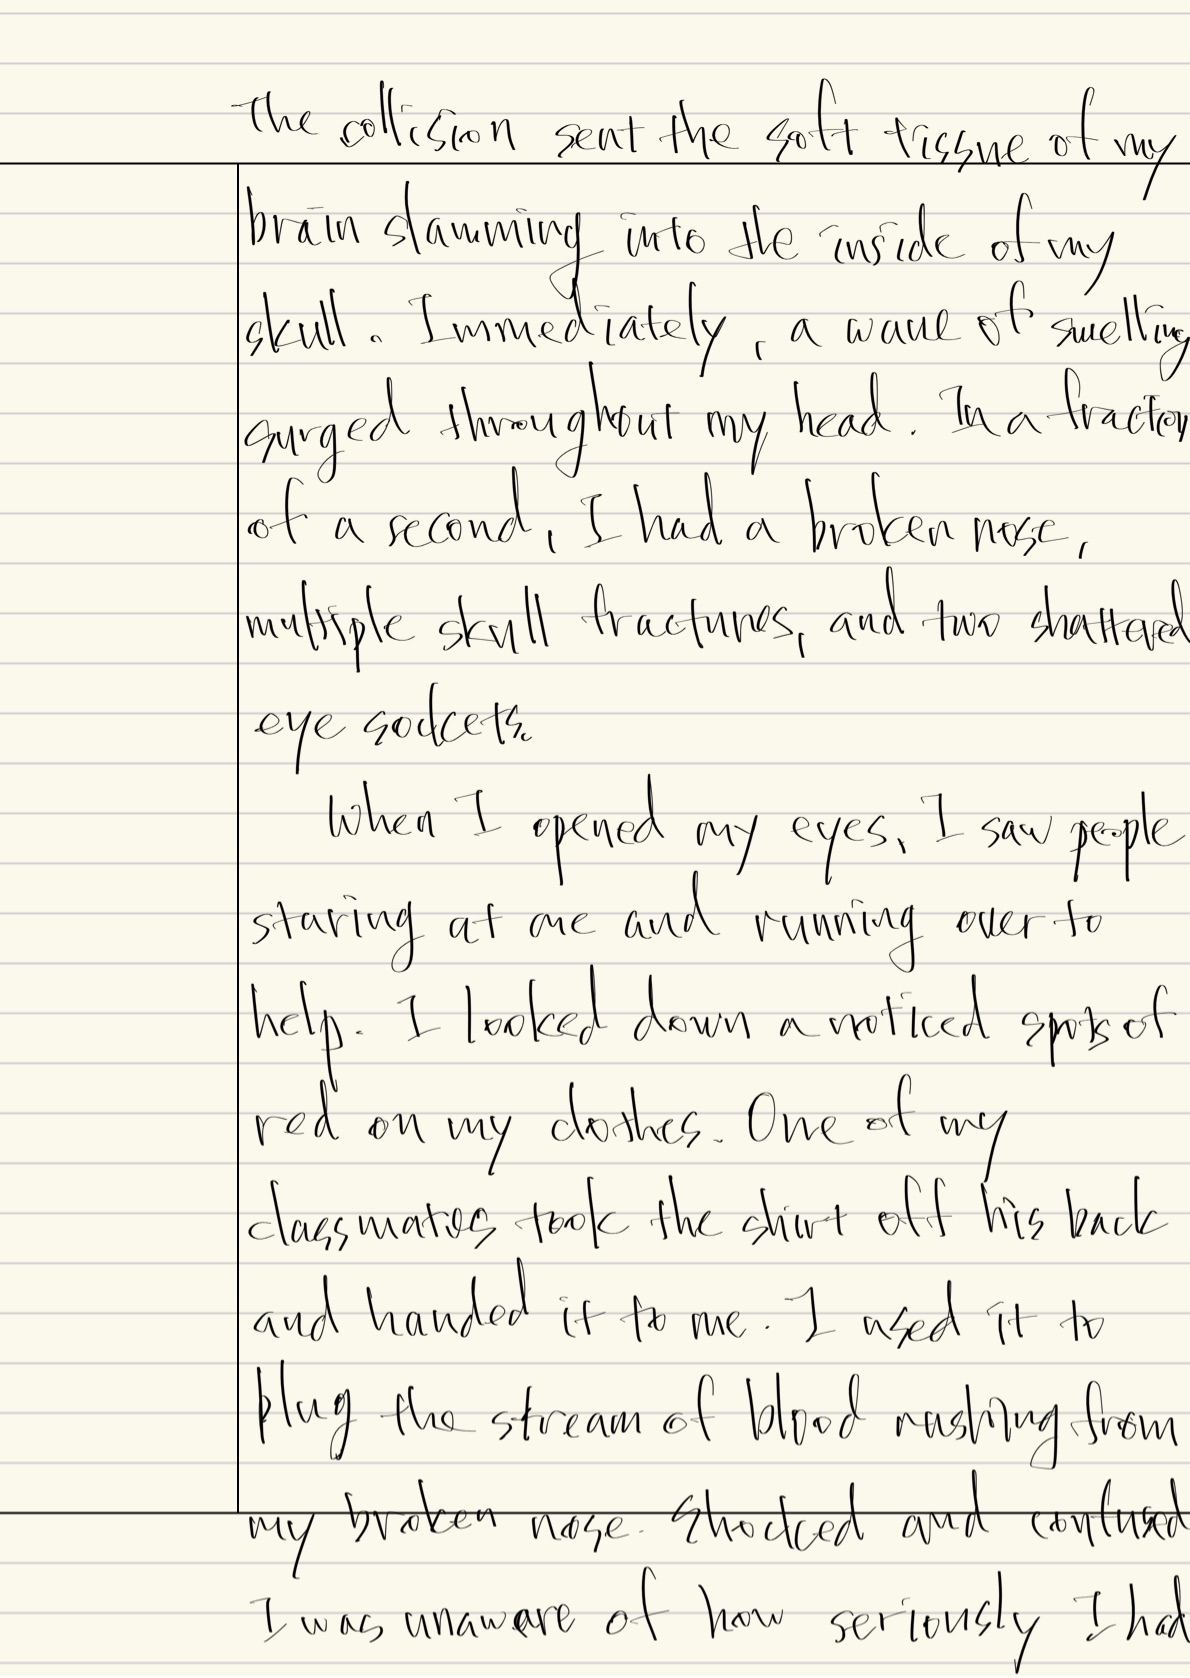 The collision sent the soft tissue of my
brain slamming into the inside of my
skull. Immediately, a wave of swelling
surged throughout my head. In a fraction
of a second, I had a broken nose,
multiple skull fractures, and two shattered
eye sockets.
When I opened my eyes, I saw people
staring at me and running over to
help. I looked down a noticed spots of
red on my clothes. One of my
classmates took the shirt off his back
and handed it to me. I used it to
plug the stream of blood rushing from
my broken nose. Shocked and confused
I was unaware of how seriously I had